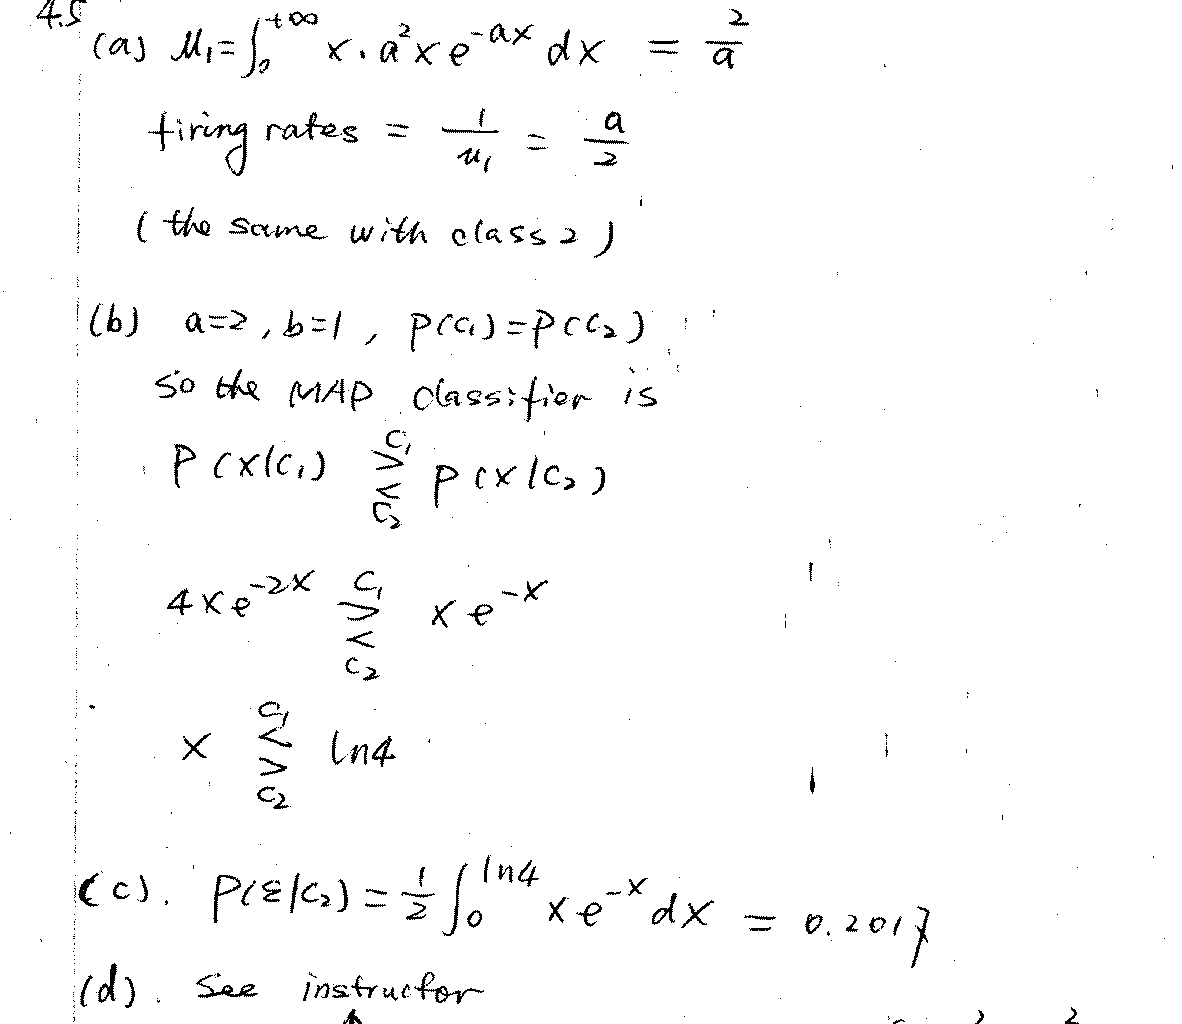 4.5
(a) μ₁ = ∫₀^{+∞} x · a²x e^{-ax} dx = 2/a
firing rates = 1/u₁ = a/2
( the same with class 2 )
(b) a=2 , b=1 , P(C₁)=P(C₂)
So the MAP classifier is
P(x|C₁) C₁ > < C₂ P(x|C₂)
4xe^{-2x} C₁ > < C₂ xe^{-x}
x C₁ < > C₂ ln4
(c). P(ε|C₂) = 1/2 ∫₀^{ln4} xe^{-x} dx = 0.2017
(d). See instructor